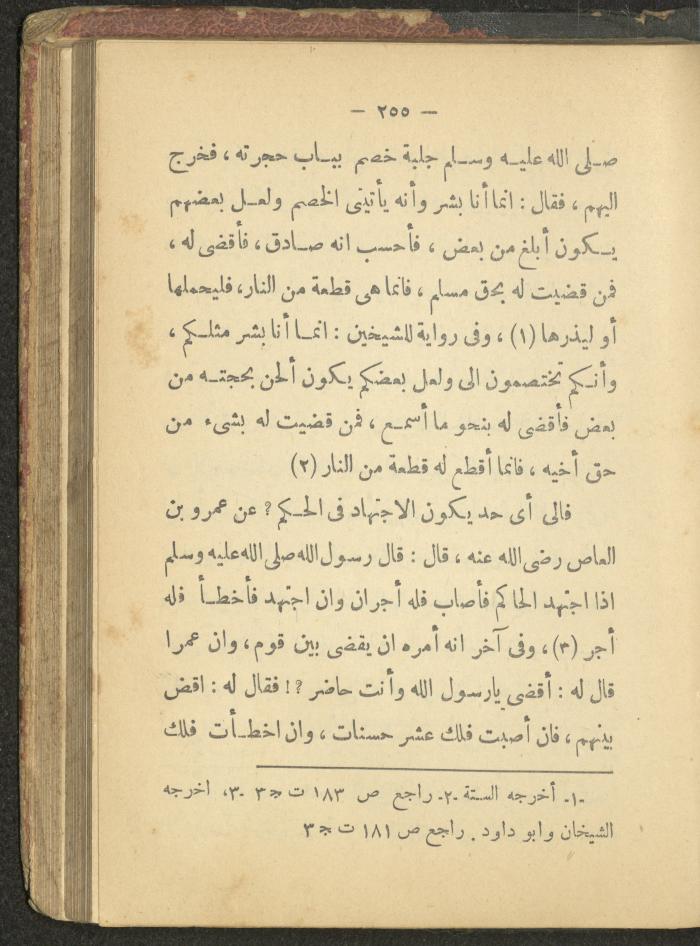 — ٢٥٥ —
صلى الله عليه وسلم جلبة خصم ببـاب حجرته ، فخرج
اليهم ، فقال : انما أنا بشر وأنه يأتينى الخصم ولعل بعضهم
يكون أبلغ من بعض ، فأحسب انه صادق ، فأقضى له ،
فمن قضيت له بحق مسلم ، فانما هى قطعة من النار، فليحملها
أو ليذرها (١) ، وفى رواية للشيخين : انمـا أنا بشر مثلكم ،
وأنكم تختصمون الى ولعل بعضكم يكون ألحن بحجتـه من
بعض فأقضى له بنحو ما أسمع ، فمن قضيت له بشىء من
حق أخيه ، فانما أقطع له قطعة من النار (٢)
فالى أى حد يكون الاجتهاد فى الحكم ? عن عمرو بن
العاص رضى الله عنه ، قال : قال رسول الله صلى الله عليه وسلم
اذا اجتهد الحاكم فأصاب فله أجران وان اجتهد فأخطأ فله
أجر (٣) ، وفى آخر انه أمره ان يقضى بين قوم ، وان عمرا
قال له : أقضى يارسول الله وأنت حاضر ?! فقال له : اقض
بينهم ، فان أصبت فلك عشر حسنات ، وان اخطأت فلك
-١- أخرجه الستة -٢- راجع ص ١٨٣ ت ج ٣ -٣، اخرجه
الشيخان وابو داود . راجع ص ١٨١ ت ج ٣